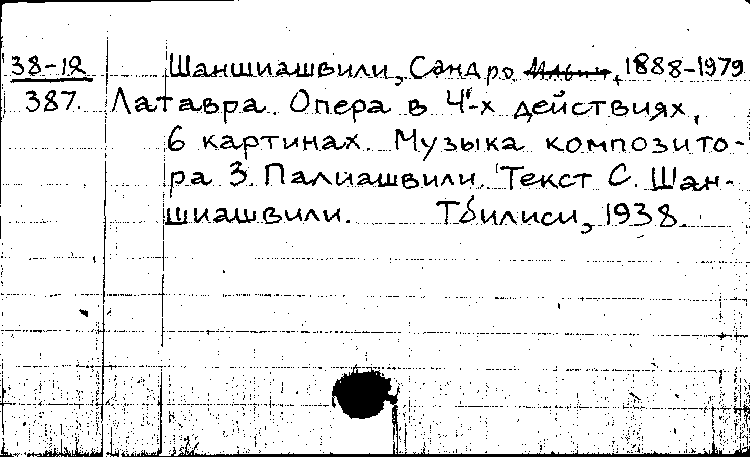 38-12 Шаншиашвили, Сандро, 1888-1979
387. Латавра. Опера в 4-х действиях,
6 картинах. Музыка композито-
ра З. Палиашвили. Текст С. Шан-
шиашвили. Тбилиси, 1938.